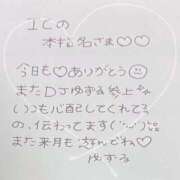 ICの
本指名さま♡♡
今日も♡ありがとう☺
またDJゆずる参上な
いつも心配してくれてる
の、伝わってます(´ω`)
また来月も よんでね♡
ゆずる